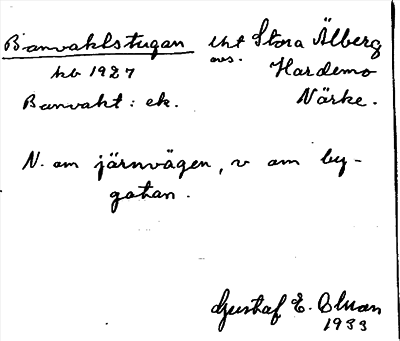 Banvaktstugan uht Stora Älberg
avs.
kb 1927 Hardemo
Banvakt: ek. Närke.
N. om järnvägen, v om by-
gatan.
Gustaf E. Olman
1933